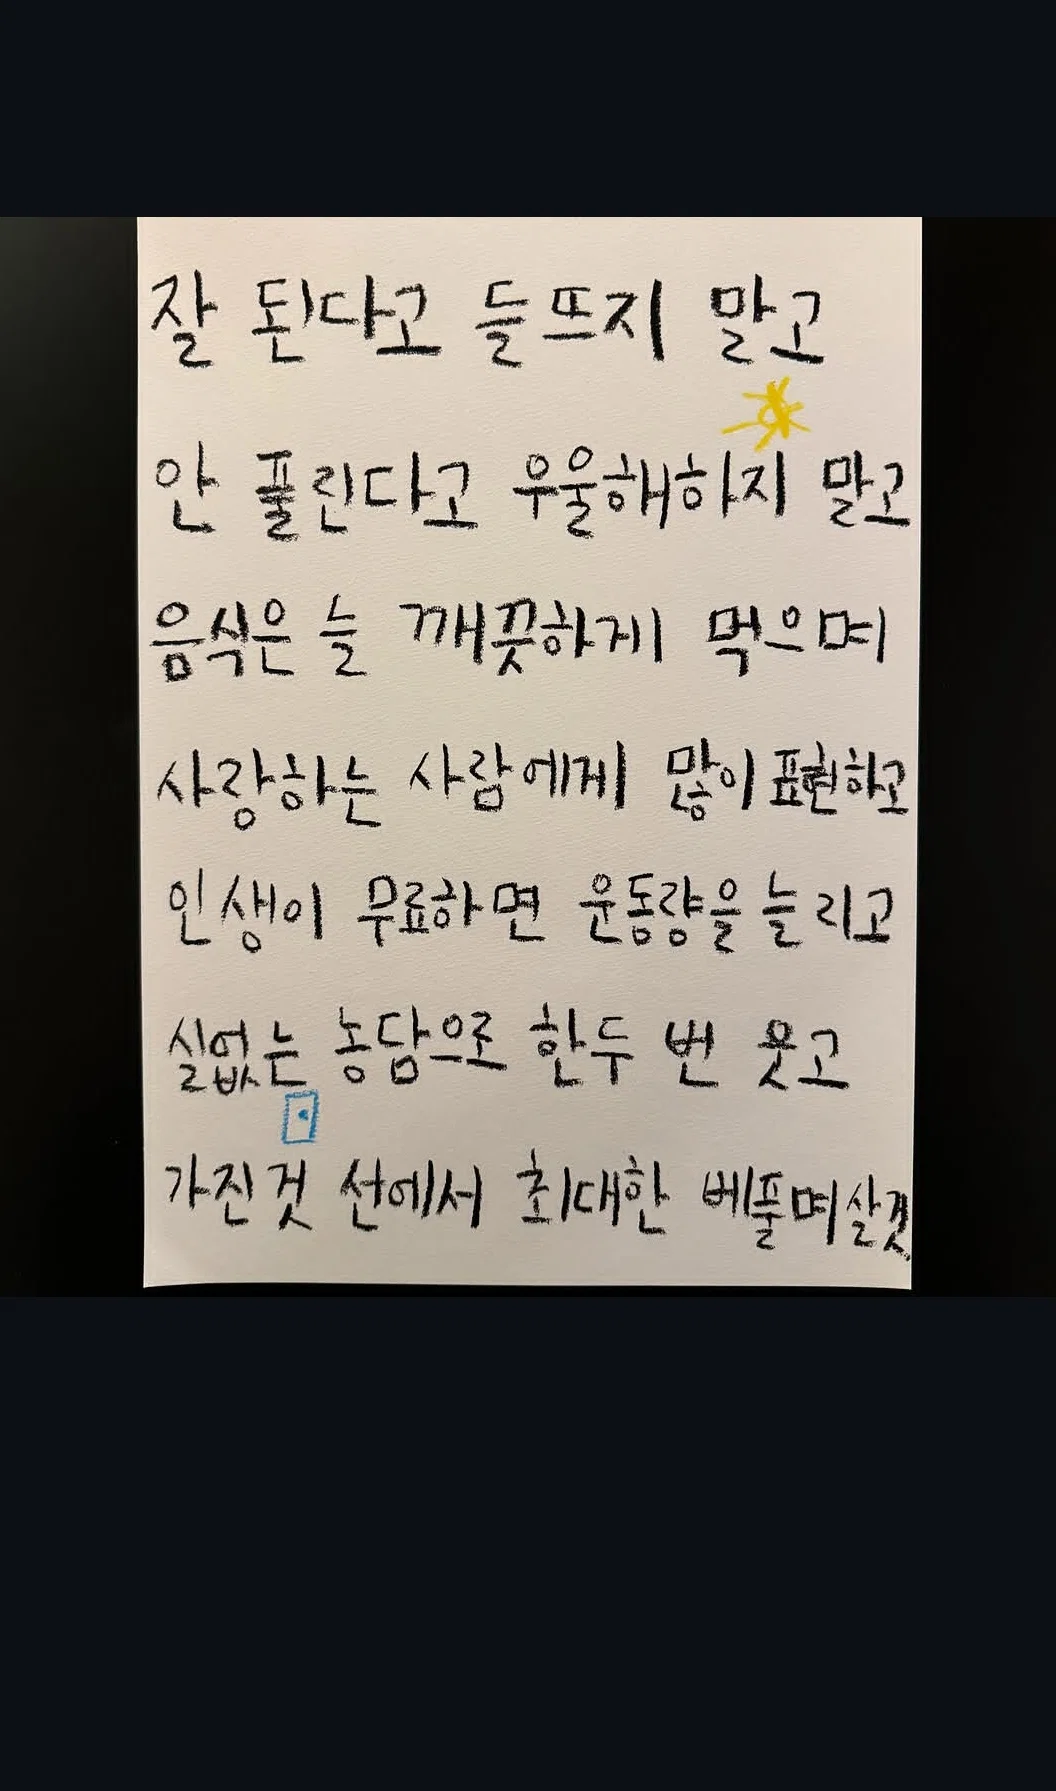 잘 된다고 들뜨지 말고
안 풀린다고 우울해하지 말고
음식은 늘 깨끗하게 먹으며
사랑하는 사람에게 많이 표현하고
인생이 무료하면 운동량을 늘리고
실없는 농담으로 한두 번 웃고
가진 것 선에서 최대한 베풀며 살것